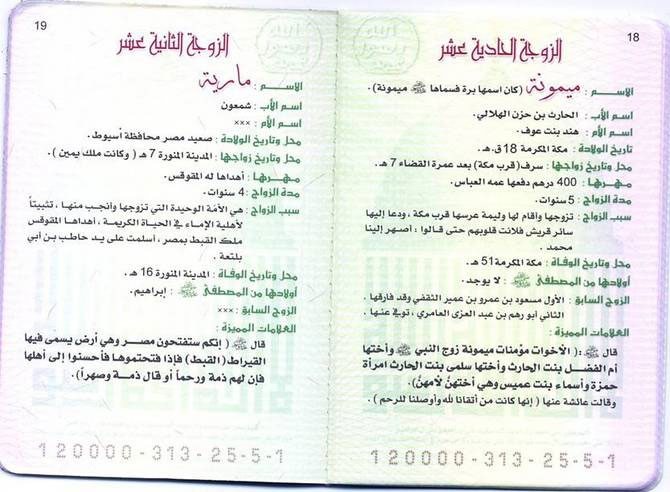 18
الزوجة الحادية عشر
الاسم : ميمونة (كان اسمها برة فسماها ﷺ ميمونة).
اسم الأب : الحارث بن حزن الهلالي.
اسم الأم : هند بنت عوف.
تاريخ الولادة : مكة المكرمة 18 ق.هـ.
محل وتاريخ زواجها : سرف(قرب مكة) بعد عمرة القضاء 7 هـ.
مهرها : 400 درهم دفعها عمه العباس.
مدة الزواج : 5 سنوات.
سبب الزواج : تزوجها وأقام لها وليمة عرسها قرب مكة ، ودعا إليها
سائر قريش فلانت قلوبهم حتى قالوا : أصهر إلينا
محمد .
محل وتاريخ الوفاة : مكة المكرمة 51 هـ.
أولادها من المصطفى ﷺ : لا يوجد.
الزوج السابق : الأول مسعود بن عمرو بن عمير الثقفي وقد فارقها .
الثاني أبو رهم بن عبد العزى العامري ، توفي عنها .
العلامات المميزة :
قال ﷺ : ( الأخوات مؤمنات ميمونة زوج النبي ﷺ وأختها
أم الفضل بنت الحارث وأختها سلمى بنت الحارث امرأة
حمزة وأسماء بنت عميس وهي أختهن لأمهن).
وقالت عائشة عنها ( إنها كانت من أتقانا لله وأوصلنا للرحم ) .
120000-313-25-5-1
19
الزوجة الثانية عشر
الاسم : مارية
اسم الأب : شمعون
اسم الأم : ×××
محل وتاريخ الولادة : صعيد مصر محافظة أسيوط .
محل وتاريخ زواجها : المدينة المنورة 7 هـ ( وكانت ملك يمين ).
مهرها : أهداها له المقوقس.
مدة الزواج : 4 سنوات .
سبب الزواج : هي الأمة الوحيدة التي تزوجها وأنجب منها ، تثبيتاً
لأهلية الإماء في الحياة الكريمة ، أهداها المقوقس
ملك القبط بمصر ، أسلمت على يد حاطب بن أبي
بلتعة .
محل وتاريخ الوفاة : المدينة المنورة 16 هـ .
أولادها من المصطفى ﷺ : إبراهيم.
الزوج السابق : ×××
العلامات المميزة :
قال ﷺ ( إنكم ستفتحون مصر وهي أرض يسمى فيها
القيراط ( القبط ) فإذا فتحتموها فأحسنوا إلى أهلها
فإن لهم ذمة ورحماً أو قال ذمة وصهراً ).
120000-313-25-5-1